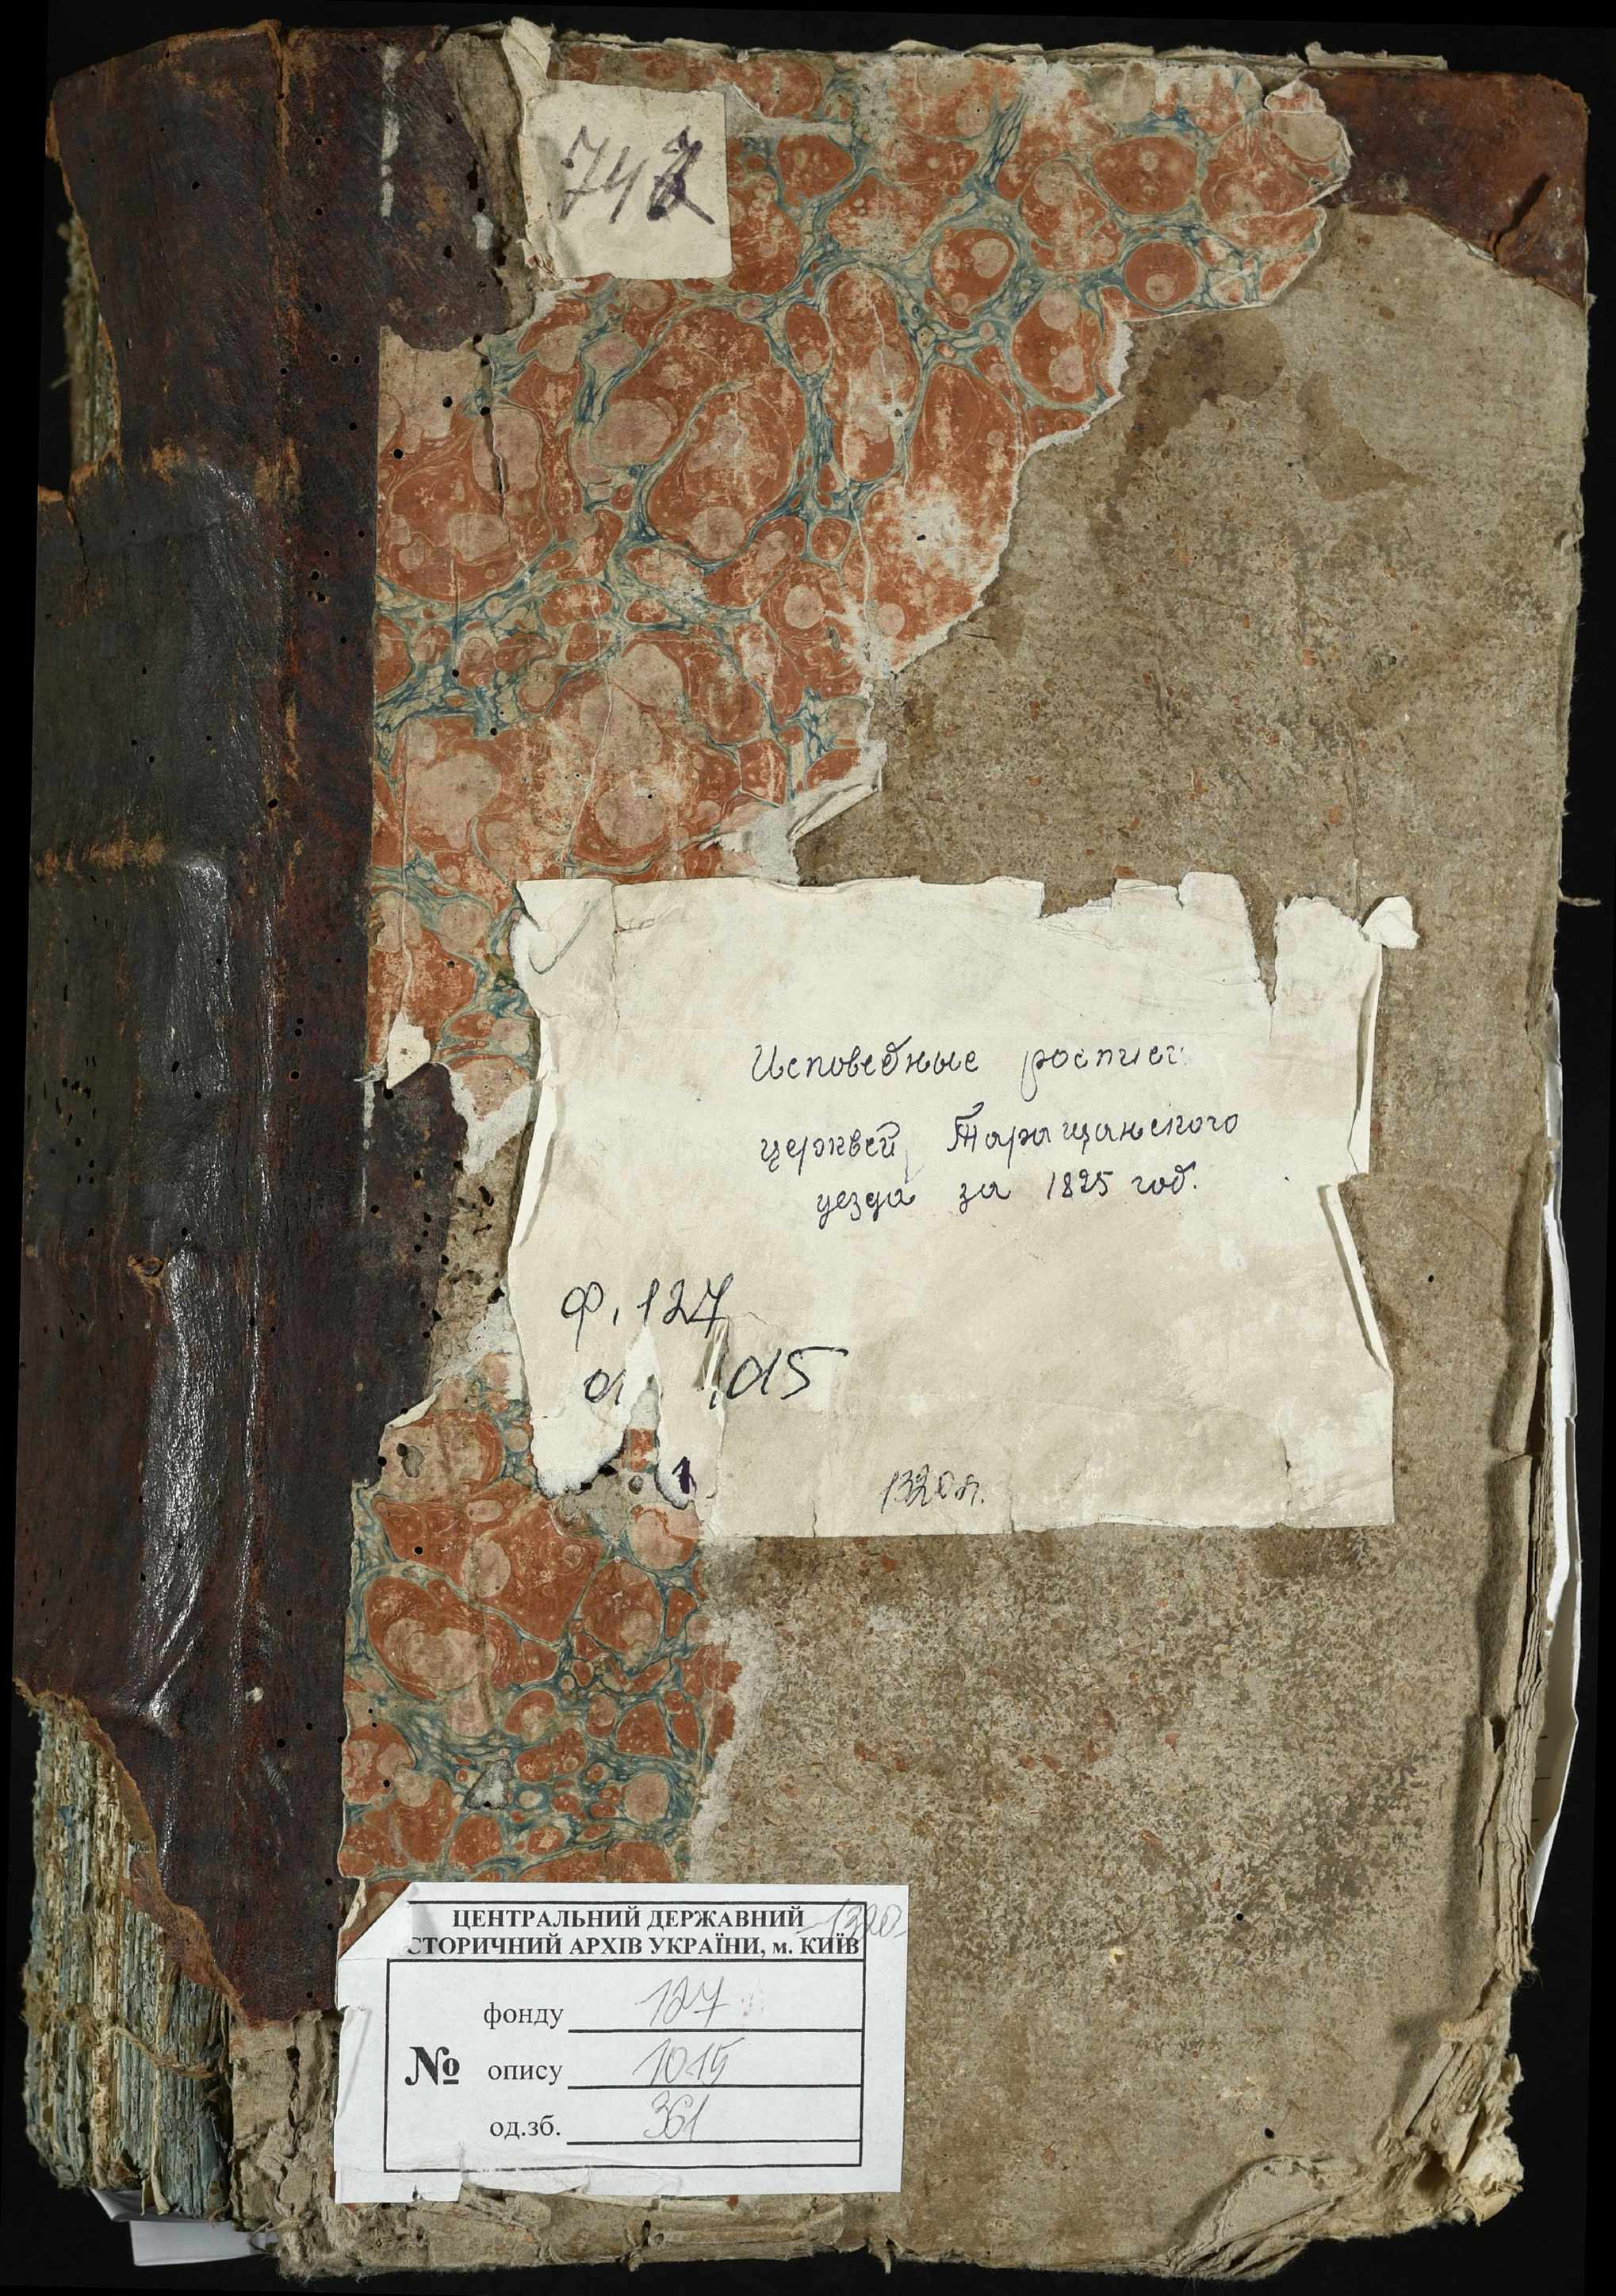 747
Исповедные росписи
церквей Таращанского
уезда за 1825 год.
ф. 127
о 1015
1
1320 л.
1320
ЦЕНТРАЛЬНИЙ ДЕРЖАВНИЙ
СТОРИЧНИЙ АРХІВ УКРАЇНИ, м. КИЇВ
фонду 127
№ опису 1015
од.зб. 361